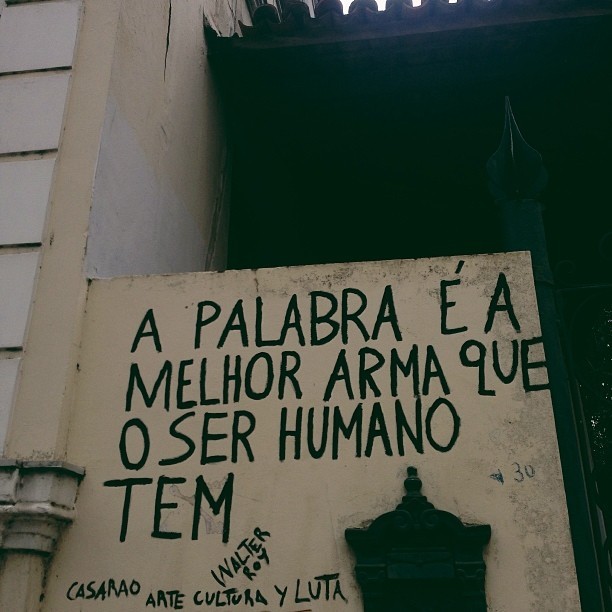 A PALABRA É A
MELHOR ARMA QUE
O SER HUMANO
TEM
30
WALTER
ROY
CASARAO ARTE CULTURA Y LUTA